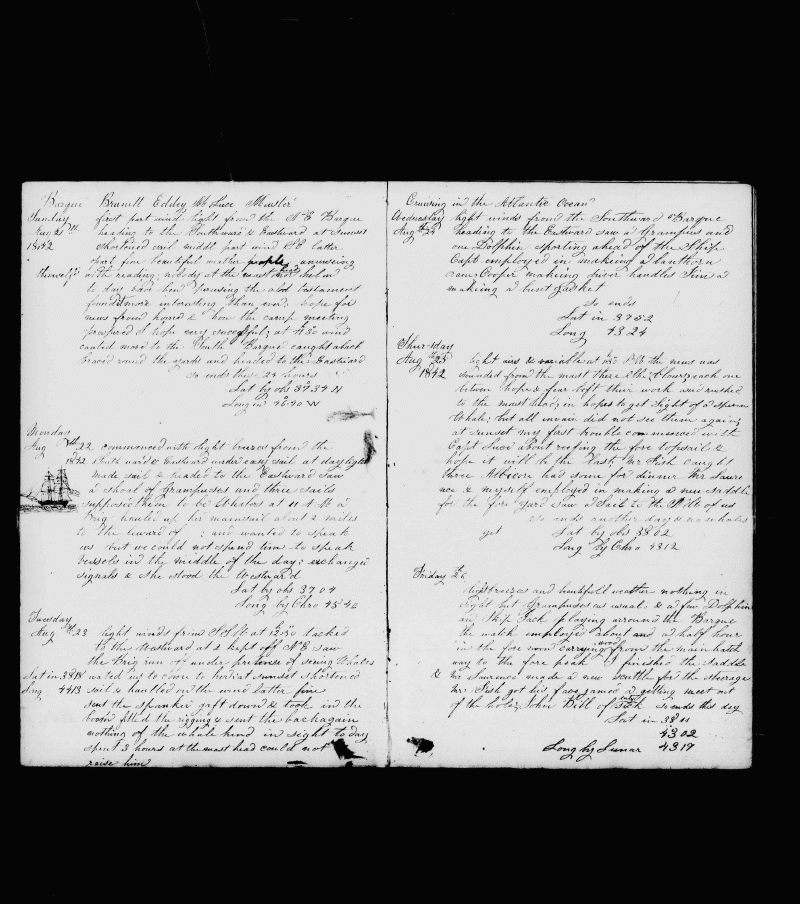 Barque Bruntt Edney M Luce Master
Sunday first part wind light from the N E Barque
Aug 21st heading to the Southward & Eastward at Sunset
1842 shortened sail middle part wind S E latter
part fine beautiful weather people amuseing
themselfs with reading; nobody at the mast head
to day have been perusing the old testament
found it more interesting than ever; hope for
news from home & how the camp meeting
prospered I hope very succesful; at 4 30 wind
canted more to the South Barque caught aback
braced round the yards and headed to the Eastward
So ends these 24 hours
Lat by obs 37 34 N
Long in 46-40 W
Monday
Aug 22 commenced with light breezes from the
1842 South ward & Eastward under easy sail at daylight
made sail & headed to the Eastward saw
a shoal of Grampuses and three sails
supposed them to be Whalers at 11 A M a
Brig hauled up his mainsail about 2 miles
to the leward of ; and wanted to speak
us but we could not spend time to speak
vessels in the middle of the day; exchanged
signals & she stood the Westward
Lat by obs 37 04
Long by Chro 45 40
Tuesday
Aug 23 light winds from S S W at 12-30 tacked
to the Westward at 2 kept off N E saw
the Brig run off under pretence of seeing Whales
Lat in 38 18 wated us to come to her; at sunset shortened
Lng 44 13 sail & haulled on the wind latter fine
sent the spanker gaft down & took in the
boom fitted the rigging & sent the back again
nothing of the whale kind in sight to day
spent 2 hours at the mast head could not
raise him
Cruising in the Atlantic Ocean
Wednesday light winds from the Southward Barque
Aug 24 heading to the Eastward saw a Grampus and
one Dolphin sporting ahead of the Ship
Capt employed in making a lanthorn
Cooper making handles Sim a
making a bunt gasket
So ends
Lat in 37 52
Long 43 24
Thursday
Aug 25 light airs & at P M the news was
1842 sounded from the mast there she blows; each one
between hope & fear left their work and rushed
to the mast head; in hopes to get sight of a sperm
Whale; but all invain did not see them again;
at sunset my first trouble commenced with
Capt Luce about reefing the fore topsail &
hope it will be the last; Mr Fish caught
three Albicore had some for dinner Mr Lawre
nce & myself employed in making a new saddle
for the fore yard Saw a Sail to the S W of us
So ends another day & no whales
yet Lat by obs 38 02
Long by Chro 43 12
Friday 26
light breezes and beautifull weather nothing in
sight but Grampuses as usual; & a few Dolphin
and Skip Jack playing arround the Barque
the watch employed about and a half hour
in the fore noon carrying wood from the main hatch
way to the fore peak I finished the saddle
& Mr Lawrence made a new scuttle for the sterage
Mr Fish got his face jamed a getting meet out
of the hole; John Bull of sick So ends this day
Lat in 38 11
43 02
Long by Lunar 43 17